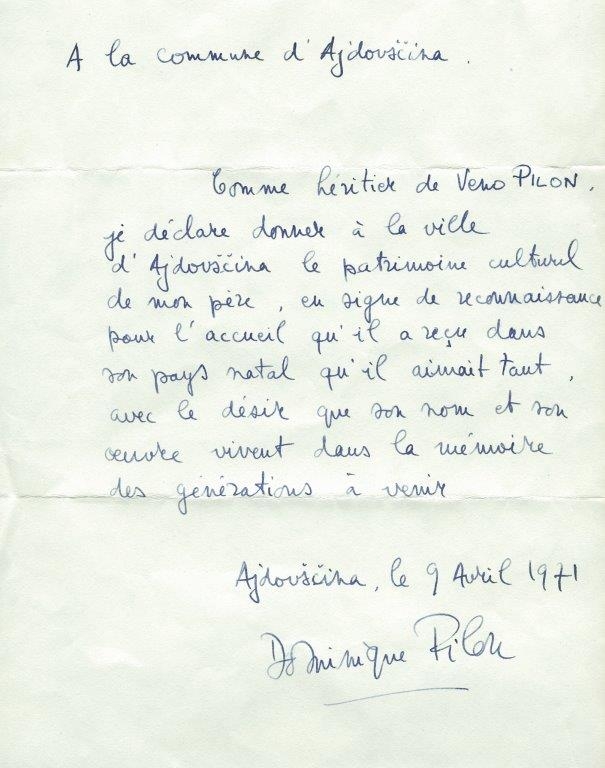 A la commune d'Ajdovščina.
Comme héritier de Veno PILON,
je déclare donner à la ville
d'Ajdovščina le patrimoine culturel
de mon père, en signe de reconnaissance
pour l'accueil qu'il a reçu dans
son pays natal qu'il aimait tant,
avec le désir que son nom et son
œuvre vivent dans la mémoire
des générations à venir
Ajdovščina, le 9 Avril 1971
Dominique Pilon